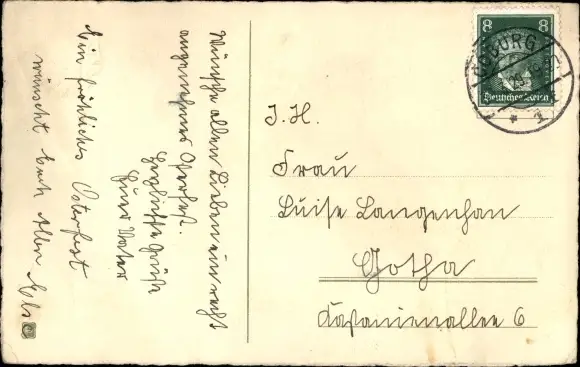 Wünsche allen Lieben ein recht
angenehmes Osterfest.
Herzliche Grüße
Euer Vater
Ein fröhliches Osterfest
wünscht Euch Allen
8 8
Deutsches Reich
COBURG
* 1
J. H.
Frau
Luise Langenhan
Gotha
Kastanienallee 6